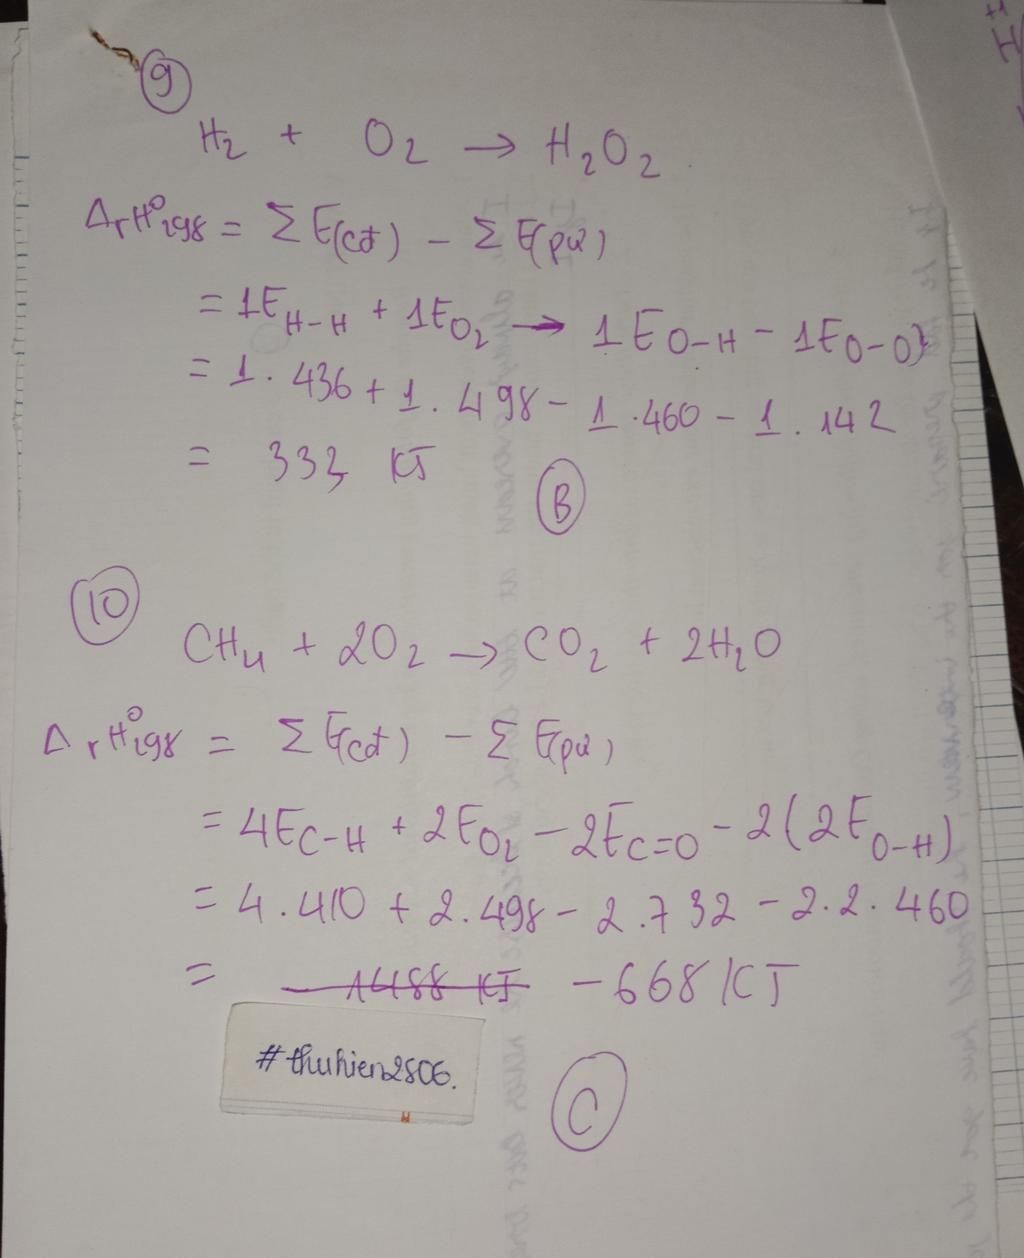 9
H₂ + O₂ → H₂O₂
ΔrH⁰298 = Σ E(cđ) - Σ E(pứ)
= 1E H-H + 1E O₂ → 1E O-H - 1E O-O
= 1. 436 + 1. 498 - 1. 460 - 1. 142
= 332 KJ
B
10
CH₄ + 2O₂ → CO₂ + 2H₂O
ΔrH⁰298 = Σ E(cđ) - Σ E(pứ)
= 4E C-H + 2E O₂ - 2E C=O - 2(2E O-H)
= 4.410 + 2.498 - 2.732 - 2.2.460
= -668 KJ
#thuhien2806.
C